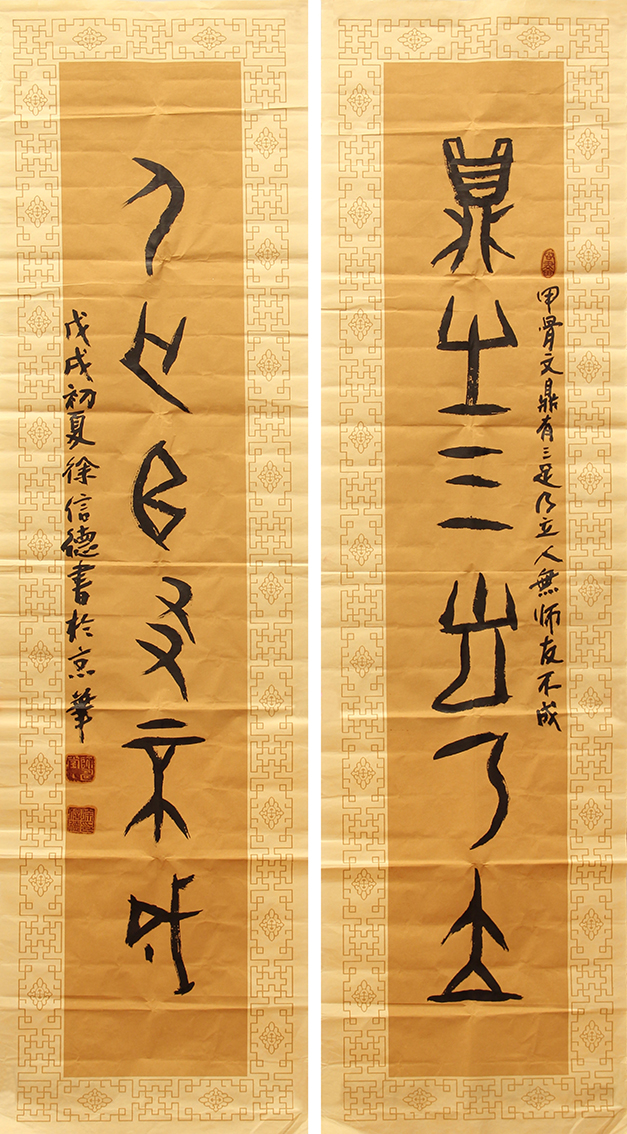 甲骨文鼎有三足乃立人無師友不成
鼎有三足乃立
人無師友不成
戊戌初夏徐信德書於京華